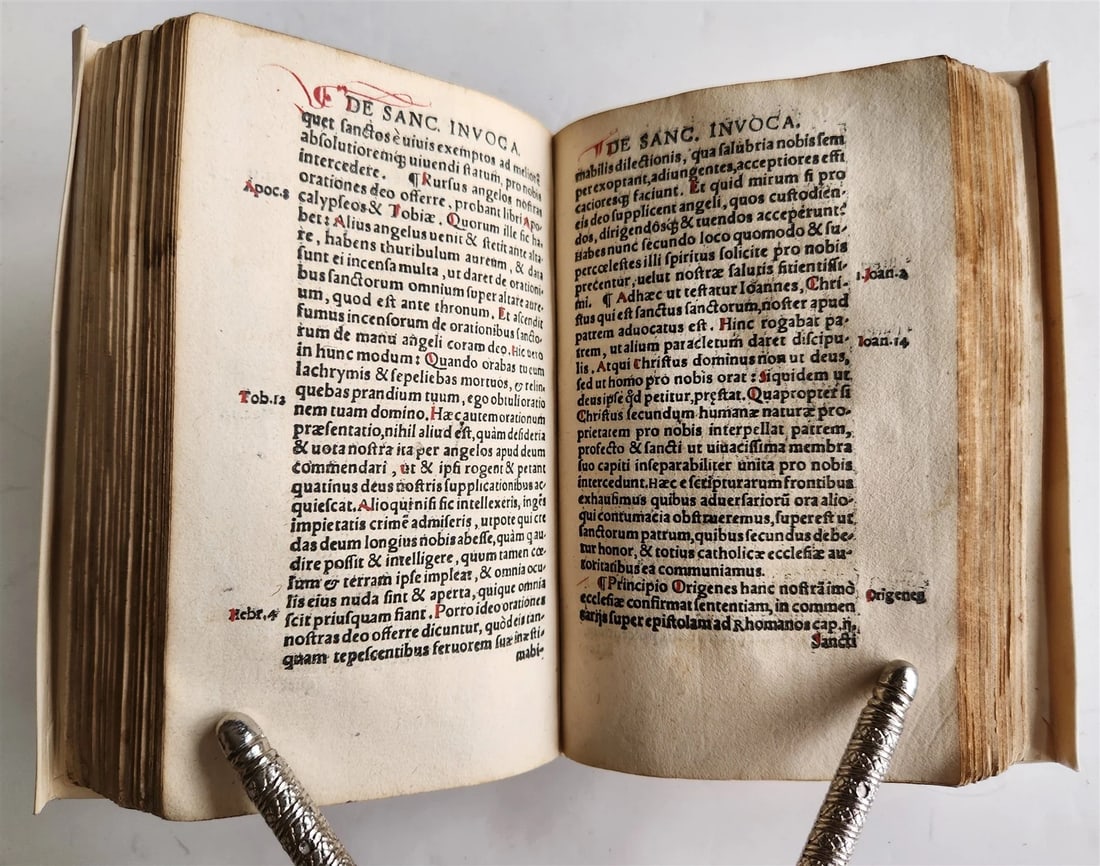 ¶ DE SANC. INVOCA.
quet sanctos è uiuis exemptos ad melioré
absolutioremq́; uiuendi statum, pro nobis
intercedere. ¶ Rursus angelos nostras
orationes deo offerre, probant libri Apo-
Apoc.8
calypseos & Tobiæ. Quorum ille sic ha-
bet: Alius angelus uenit & stetit ante alta-
re, habens thuribulum aureum, & data
sunt ei incensa multa, ut daret de orationi-
bus sanctorum omnium super altare aure-
um, quod est ante thronum. Et ascendit
fumus incensorum de orationibus sancto-
rum de manu angeli coram deo. Hic uero
in hunc modum: Quando orabas tu cum
lachrymis & sepeliebas mortuos, & relin-
Tob.12
quebas prandium tuum, ego obtuli oratio
nem tuam domino. Hæc autem orationum
præsentatio, nihil aliud est, quàm desideria
& uota nostra ita per angelos apud deum
commendari, ut & ipsi rogent & petant
quatinus deus nostris supplicationibus ac-
quiescat. Alioqui nisi sic intellexeris, ingés
impietatis crimé admiseris, utpote qui cre
das deum longius nobis abesse, quàm q au-
dire possit & intelligere, quum tamen cœ-
lum & terram ipse impleat, & omnia ocu-
lis eius nuda sint & aperta, quique omnia
Hebr.4
scit priusquam fiant. Porro ideo orationes
nostras deo offerre dicuntur, quòd eis tan-
quam tepescentibus feruorem suæ inæsti-
mabi-
¶ DE SANC. INVOCA.
mabilis dilectionis, qua salubria nobis sem
per exoptant, adiungentes, acceptiores effi
cacioresq́; faciunt. Et quid mirum si pro
eis deo supplicent angeli, quos custodien-
dos, dirigendósq́; & tuendos acceperunt?
Habes nunc secundo loco quomodo & su-
percœlestes illi spiritus solicite pro nobis
precentur, uelut nostræ salutis sitientissi-
1.Ioan.2
mi. ¶ Adhæc ut testatur Ioannes, Chri-
stus qui est sanctus sanctorum, noster apud
patrem aduocatus est. Hinc rogabat pa-
Ioan.14
trem, ut alium paracletum daret discipu-
lis. Atqui Christus dominus non ut deus,
sed ut homo pro nobis orat: Siquidem ut
deus ipse q́d petitur, præstat. Quapropter si
Christus secundum humanæ naturæ pro-
prietatem pro nobis interpellat patrem,
profecto & sancti ut uiuacissima membra
suo capiti inseparabiliter unita pro nobis
intercedunt. Hæc e scripturarum frontibus
exhausimus quibus aduersariorũ ora alio-
qui contumacia obstrueremus, superest ut
sanctorum patrum, quibus secundus debe-
tur honor, & totius catholicæ ecclesiæ au-
toritatibus ea communiamus.
¶ Principio Origenes hanc nostrã imò
Origenes
ecclesiæ confirmat sententiam, in commen
tarijs super epistolam ad Rhomanos cap.ij.
Sancti